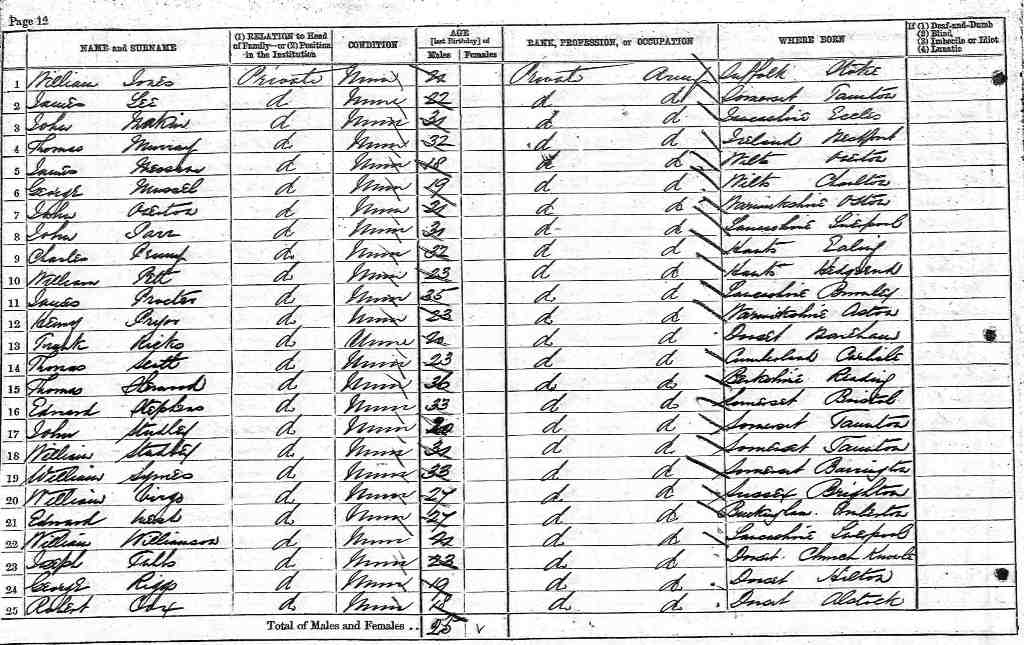 Page 12
NAME and SURNAME (1) RELATION to Head of Family—or (2) Position in the Institution CONDITION AGE [last Birthday] of Males Females RANK, PROFESSION, or OCCUPATION WHERE BORN If (1) Deaf-and-Dumb (2) Blind (3) Imbecile or Idiot (4) Lunatic
1 William Jones Private Unm Private Army Suffolk Stoke
2 James Lee d Unm 22 d d Somerset Taunton
3 John Makin d Unm d d Lancashire Eccles
4 Thomas Murray d Unm 32 d d Ireland
5 James d Unm 18 d d Wilts
6 George Mussel d Unm 19 d d Wilts Charlton
7 John Overton d Unm 21 d d Warwickshire
8 John d Unm d d Lancashire Liverpool
9 Charles Penny d Unm 32 d d Hants Ealing
10 William Pitt d Unm 23 d d Hants Hedgend
11 James Procter d Unm 35 d d Lancashire Burnley
12 Henry Pryor d Unm 23 d d Warwickshire Aston
13 Frank Ricks d Unm d d Dorset Wareham
14 Thomas Scott d Unm 23 d d Cumberland Carlisle
15 Thomas d Unm 36 d d Berkshire Reading
16 Edward Stephens d Unm 33 d d Somerset Bristol
17 John Studley d Unm d d Somerset Taunton
18 William Studley d Unm d d Somerset Taunton
19 William Symes d Unm 33 d d Somerset Barrington
20 William Virgo d Unm 27 d d Sussex Brighton
21 Edward West d Unm 27 d d
22 William Williamson d Unm d d Lancashire Liverpool
23 Joseph Tubbs d Unm 23 d d Dorset Church Knowle
24 George Riggs d Unm 19 d d Dorset Hilton
25 Robert Cox d Unm 18 d d Dorset
Total of Males and Females .. 25